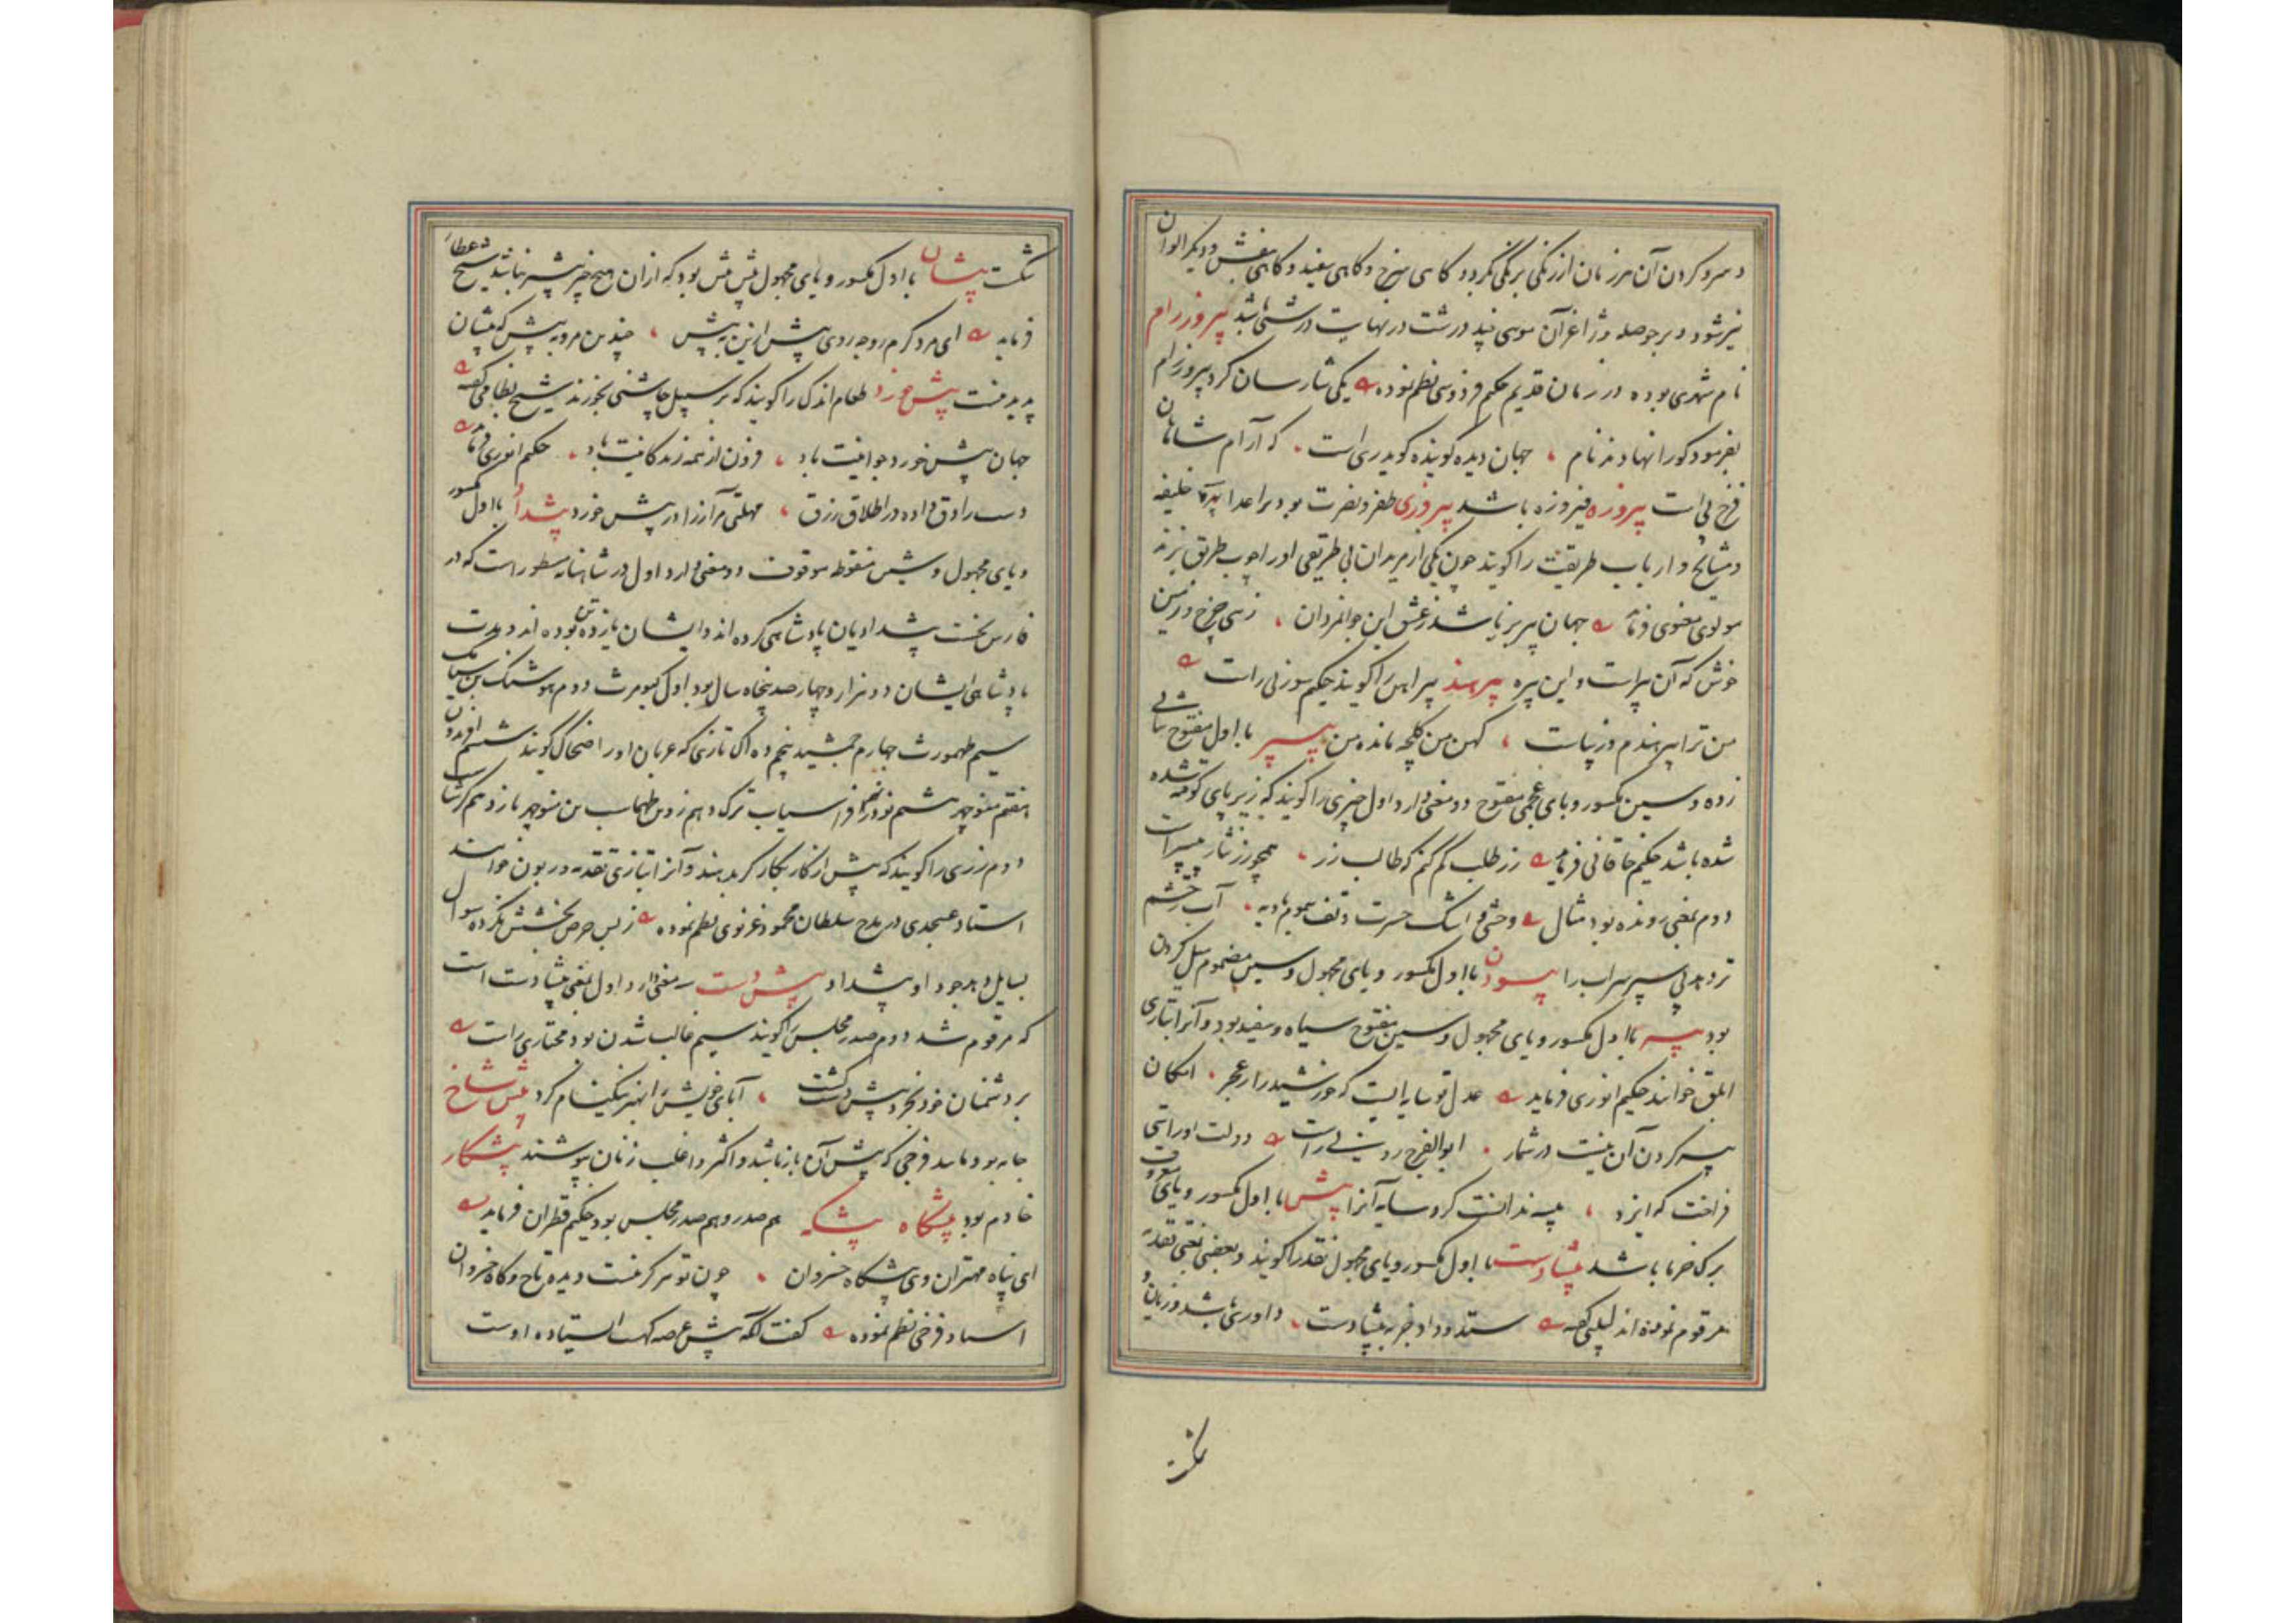 و سرو کردن آن هر زمان از رنگی برنگی گردد گاهی سرخ و گاهی سفید و گاهی بنفش و دیگر الوان
نیز شود و بر حوصله و ژاغر آن موسی چند درشت در نهایت درشتی باشد پیروزرام
نام شهری بوده در زمان قدیم حکیم فردوسی نظم نموده یکی شارسان کرد پیروزرام
بفرمود کورا نهادند نام جهان دیده گوینده گوید ری است که آرام شاهان
فرخ پی است پیروزه فیروزه باشد پیروزی ظفر و نصرت بود بر اعدا پیره خلیفه
و مشایخ و ارباب طریقت را گویند چون یکی از مریدان بی طریقی اورا چوب طریق بزند
مولوی معنوی فرماید جهان پیر برنا شد ز عشق این جوانمردان زهی چرخ و زمین
خوش که آن پیراست و این پیره پیرهند پیراهن را گویند حکیم سوزنی راست
من ترا پیرهندم و زیباست کهن من کلچه مانده من پیسپر با اول مفتوح بثانی
زده و سین مکسور و بای عجمی مفتوح دو معنی دارد اول چیزی را گویند که زیر پای کوفته شده
شده باشد حکیم خاقانی فرماید زر طلب گم کنم که طالب زر همچو زر نثار پیسپر است
دوم بمعنی رونده بود مثال وحشی اشک حسرت و تف سموم بادیه آب چشم
تر دهد پی سپر سراب را پیسودن با اول مکسور و یای مجهول و سین مضموم میل کردن
بود پیسه با اول مکسور و یای مجهول و سین مفتوح سیاه و سفید بود و آنرا بتازی
ابلق خوانند حکیم انوری فرماید عدل تو سایه ایست که خورشید را ز عجز امکان
پیسه کردن آن نیست در شمار ابوالفرج رونی راست دولت او رایتی
فراخت که ایزد پیسه ندانست کرد سایه آنرا پیش با اول مکسور و یای معروف
برگ خرما باشد پیشادست با اول مکسور و یای مجهول نقد را گویند و بعضی بمعنی نقده
مرقوم نموده اند لبیبی گفته ستد و داد جز به پیشادست داوری باشد و زیان و
شکست
شکست پیشان با اول مکسور و یای مجهول پیش پیش بود که از ان هیچ چیز پیشتر نباشد شیخ عطار
فرماید ای مرد گرم رو چه روی پیش ازین به پیش چندین مرو به پیش که پیشان
پدید نیست پیش خورد طعام اندک را گویند که بر سبیل چاشنی بخورند شیخ نظامی گفته
جهان پیش خورد جوانیت باد فزون از همه زندگانیت باد حکیم انوری فرماید
دست رادق داده در اطلاق رزق مهلتی مر آرزا در پیش خورد پیشداد با اول مکسور
و یای مجهول و شین منقوطه موقوف دو معنی دارد اول در شاهنامه مسطور است که در
فارس نخست پیشدادیان پادشاهی کرده اند و ایشان یازده تن بوده اند و مدت
پادشاهی ایشان دو هزار و چهارصد پنجاه سال بود اول کیومرث دوم هوشنگ بن سیامک
سیم طهمورث چهارم جمشید پنجم ده اک تازی که عربان اورا ضحاک گویند ششم افریدون
هفتم منوچهر هشتم نوذر نهم افراسیاب ترک دهم زو بن طهماسب بن منوچهر یازدهم گرشاسب
دوم زری را گویند که پیش از کار بکارگر بدهند و آنرا بتازی تقدمه و ربون خوانند
استاد عسجدی در مدح سلطان محمود غزنوی نظم نموده ز بس حرص بخشش نکرده سوال
بسایل دهد جود او پیشداد پیش دست سه معنی دارد اول بمعنی پیشادست است
که مرقوم شد دوم صدر مجلس را گویند سیم غالب شدن بود مختاری راست
بر دشمنان خود بخرد پیش دست گشت آبای خویش را بهنر نیکنام کرد پیش شاخ
جامه بود مانند فرجی که پیش آن باز باشد و اکثر و اغلب زنان پوشند پیشکار
خادم بود پیشگاه پیشگه هم صدر و هم صدر مجلس بود حکیم قطران فرماید
ای پناه مهتران وی پیشگاه خسروان چون تو هرگز نیست دیده تاج و گاه خسروان
استاد فرخی نظم نموده گفت آنکه پیش عرصه گهت ایستاده اوست